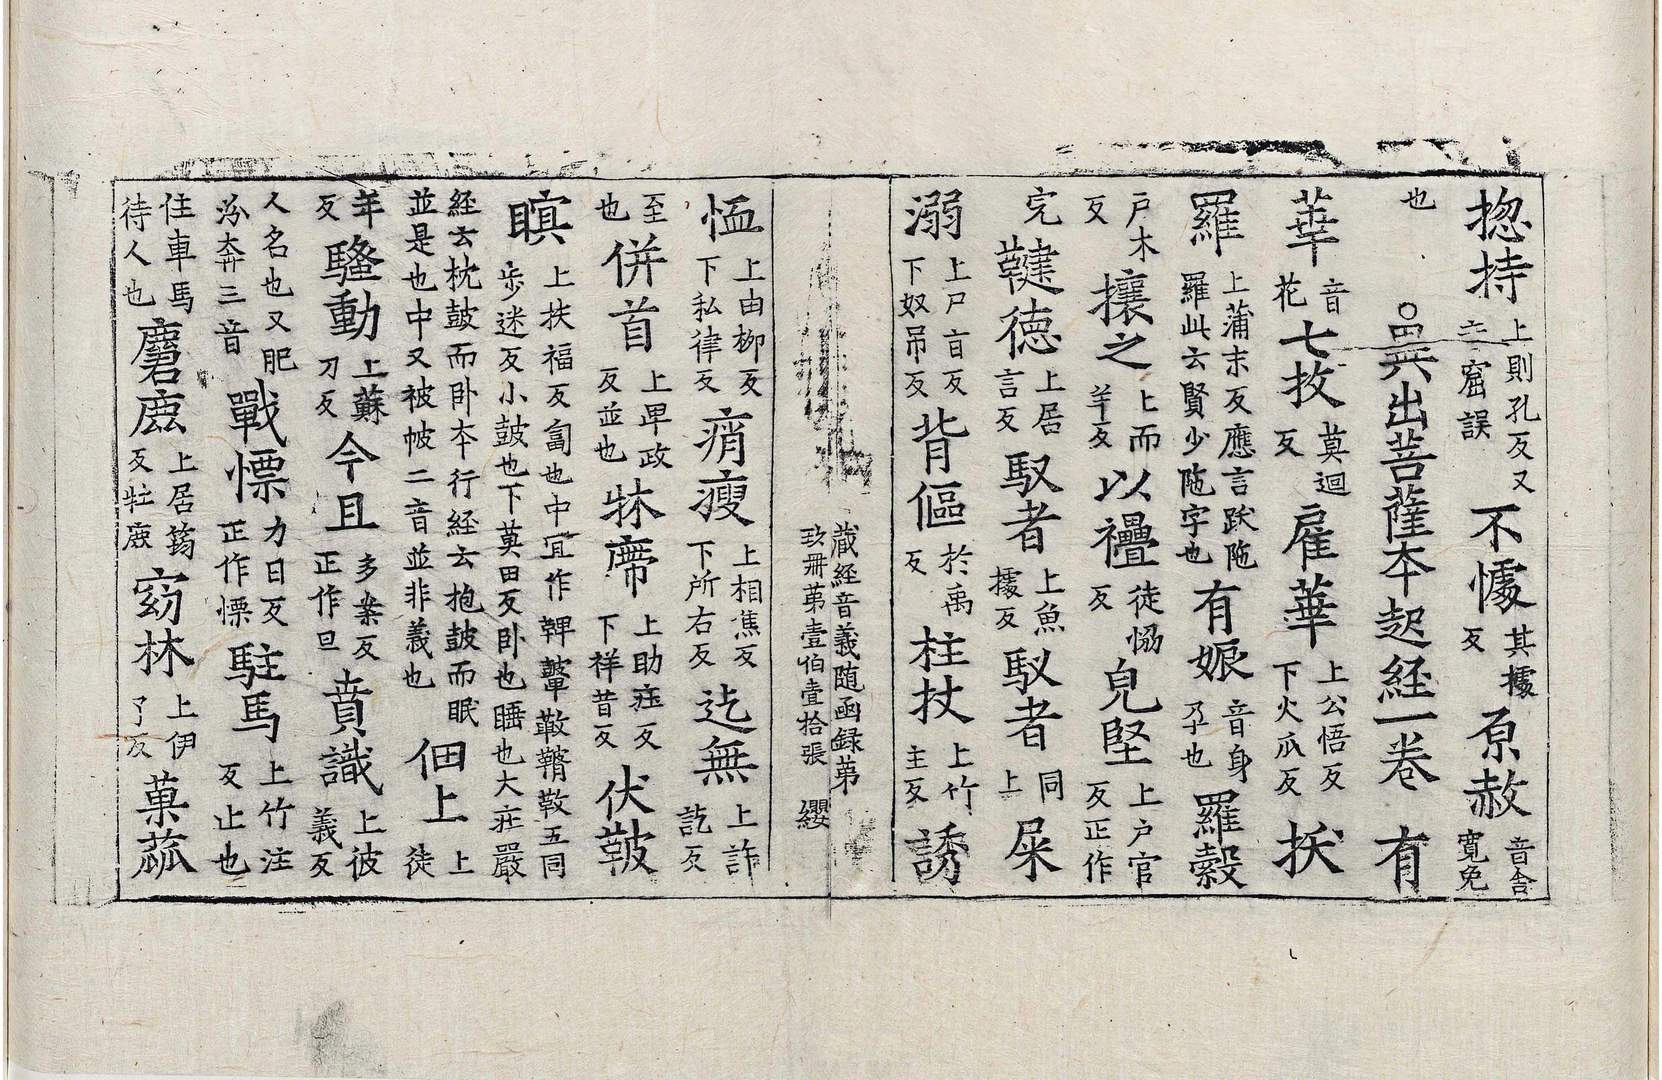 揔持上則孔反又立窟誤不懅其據反原赦音舍寬免
也○異出菩薩本起經一卷有
華音花七枚莫迴反雇華上公悟反下火瓜反抧
羅上蒲末反應言跋陁羅此云賢少陁字也有娠音身孕也羅縠
戶木反攘之上而羊反以疊徒恊反皃堅上戶官反正作
完鞬德上居言反馭者上魚據反馭者同上屎
溺上尸旨反下奴吊反背傴於禹反柱杖上竹主反誘
藏經音義随函録苐
玖冊苐壹伯壹拾張 纓
恤上由柳反下私律反痟瘦上相焦反下所右反迄無上許訖反
至也併首上畀政反並也牀席上助庄反下祥昔反伏鞁
瞑上扶福反匐也中冝作鞞鼙鼖鞧鼛五同步迷反小鼓也下莫田反卧也睡也大莊嚴
經云枕鼓而卧本行經云抱鼓而眠並是也中又被帔二音並非義也佃上上徒
年反騷動上蘇刀反今且多案反正作旦賁識上彼義反
人名也又肥汾奔三音戰慄力日反正作慄駐馬上竹注反止也
住車馬待人也麏鹿上居筠反牡鹿窈林上伊了反菓蓏